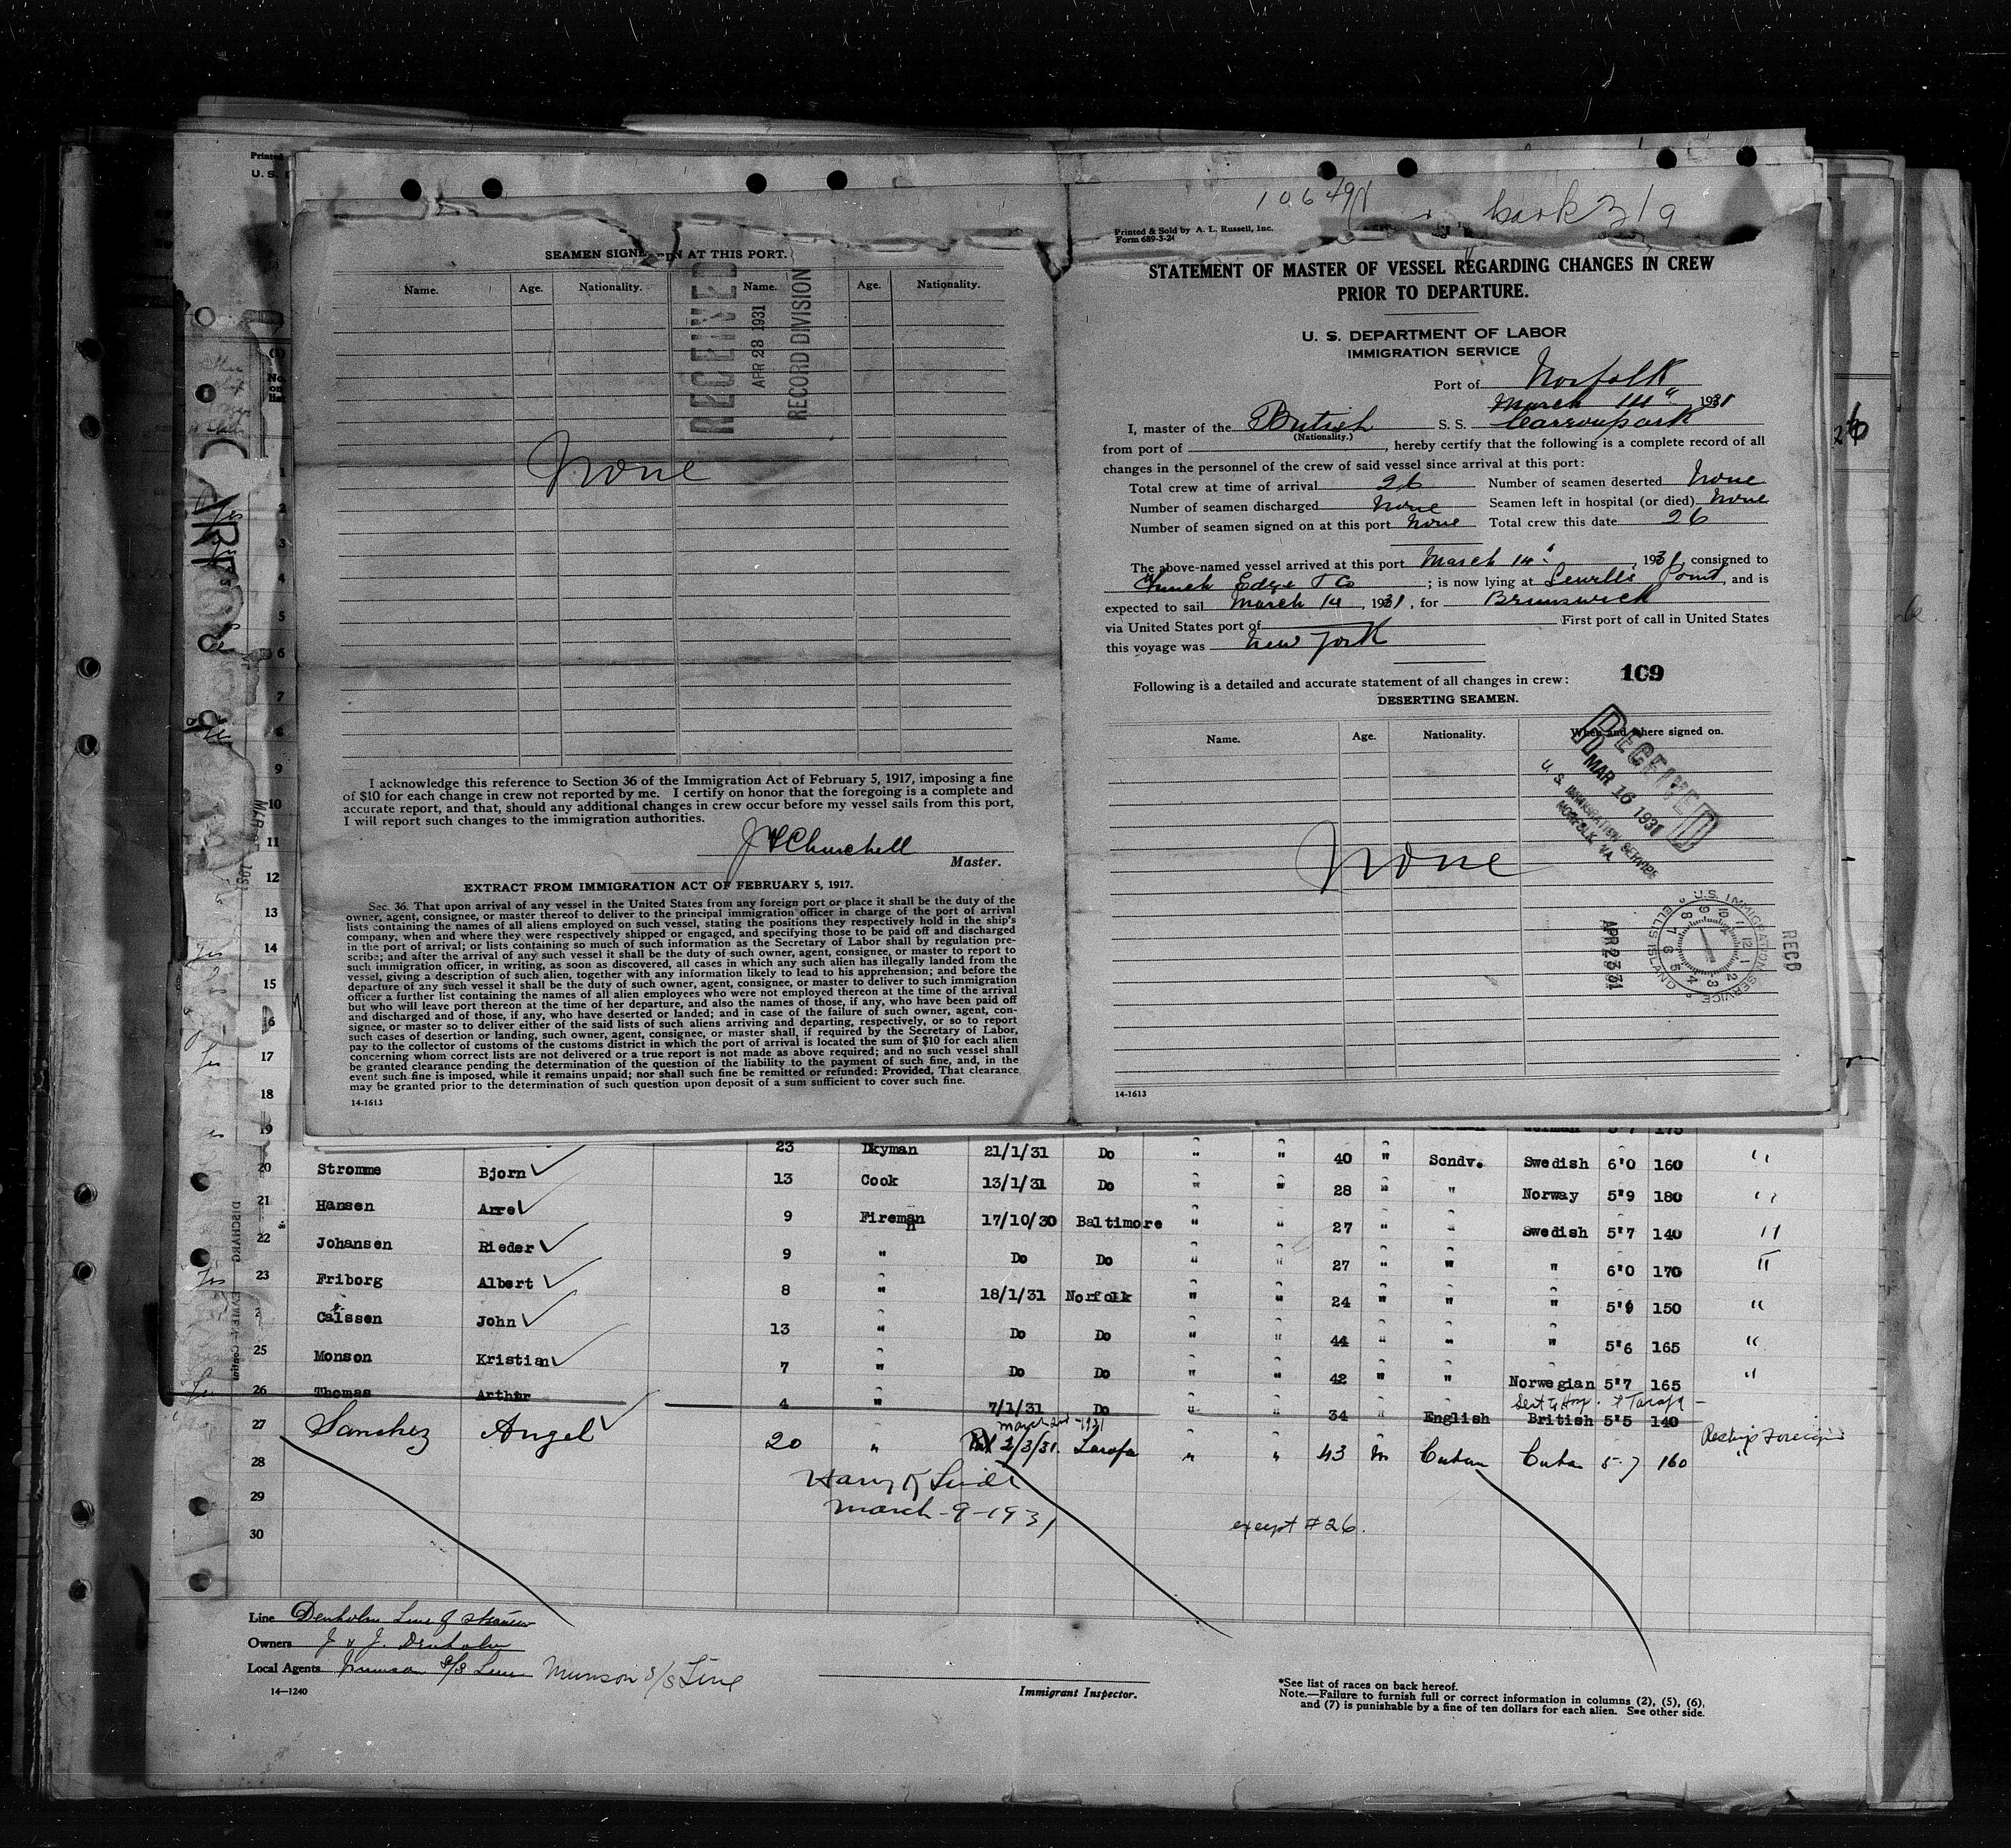 Printed
U. S. D
SEAMEN SIGNED ON AT THIS PORT.
Name. Age. Nationality. Name. Age. Nationality.
RECEIVED
APR 28 1931
RECORD DIVISION
None
I acknowledge this reference to Section 36 of the Immigration Act of February 5, 1917, imposing a fine
of $10 for each change in crew not reported by me. I certify on honor that the foregoing is a complete and
accurate report, and that, should any additional changes in crew occur before my vessel sails from this port,
I will report such changes to the immigration authorities.
Churchell
Master.
EXTRACT FROM IMMIGRATION ACT OF FEBRUARY 5, 1917.
Sec. 36. That upon arrival of any vessel in the United States from any foreign port or place it shall be the duty of the
owner, agent, consignee, or master thereof to deliver to the principal immigration officer in charge of the port of arrival
lists containing the names of all aliens employed on such vessel, stating the positions they respectively hold in the ship's
company, when and where they were respectively shipped or engaged, and specifying those to be paid off and discharged
in the port of arrival; or lists containing so much of such information as the Secretary of Labor shall by regulation pre-
scribe; and after the arrival of any such vessel it shall be the duty of such owner, agent, consignee, or master to report to
such immigration officer, in writing, as soon as discovered, all cases in which any such alien has illegally landed from the
vessel, giving a description of such alien, together with any information likely to lead to his apprehension; and before the
departure of any such vessel it shall be the duty of such owner, agent, consignee, or master to deliver to such immigration
officer a further list containing the names of all alien employees who were not employed thereon at the time of the arrival
but who will leave port thereon at the time of her departure, and also the names of those, if any, who have been paid off
and discharged and of those, if any, who have deserted or landed; and in case of the failure of such owner, agent, con-
signee, or master so to deliver either of the said lists of such aliens arriving and departing, respectively, or so to report
such cases of desertion or landing, such owner, agent, consignee, or master shall, if required by the Secretary of Labor,
pay to the collector of customs of the customs district in which the port of arrival is located the sum of $10 for each alien
concerning whom correct lists are not delivered or a true report is not made as above required; and no such vessel shall
be granted clearance pending the determination of the question of the liability to the payment of such fine, and, in the
event such fine is imposed, while it remains unpaid; nor shall such fine be remitted or refunded: Provided, That clearance
may be granted prior to the determination of such question upon deposit of a sum sufficient to cover such fine.
14-1613
Printed & Sold by A. L. Russell, Inc.
Form 689-3-24
STATEMENT OF MASTER OF VESSEL REGARDING CHANGES IN CREW
PRIOR TO DEPARTURE.
U. S. DEPARTMENT OF LABOR
IMMIGRATION SERVICE
Port of Norfolk
March 14" 1931
I, master of the British S. S. Carronpark
(Nationality.)
from port of , hereby certify that the following is a complete record of all
changes in the personnel of the crew of said vessel since arrival at this port:
Total crew at time of arrival 26 Number of seamen deserted None
Number of seamen discharged None Seamen left in hospital (or died) None
Number of seamen signed on at this port None Total crew this date 26
The above-named vessel arrived at this port March 14" , 1931, consigned to
Edge & Co ; is now lying at Sewells Point, and is
expected to sail March 14, 1931, for Brunswick
via United States port of First port of call in United States
this voyage was New York
109
Following is a detailed and accurate statement of all changes in crew:
DESERTING SEAMEN.
Name. Age. Nationality. When and where signed on.
RECEIVED
MAR 16 1931
U. S. IMMIGRATION SERVICE
NORFOLK, VA.
None
U.S. IMMIGRATION SERVICE
ELLIS ISLAND
REC'D
14-1613
23 Dkyman 21/1/31 Do " " 40 " Scndv. Swedish 6'0 160 "
20 Stromme Bjorn 13 Cook 13/1/31 Do " " 28 " " Norway 5'9 180 "
21 Hansen Arre 9 Fireman 17/10/30 Baltimore " " 27 " " Swedish 5'7 140 "
22 Johansen Rieder 9 " Do Do " " 27 " " " 6'0 170 "
23 Friborg Albert 8 " 18/1/31 Norfolk " " 24 " " " 5'6 150 "
Calssen John 13 " Do Do " " 44 " " " 5'6 165 "
25 Monson Kristian 7 " Do Do " " 42 " " Norwegian 5'7 165 "
26 Thomas Arthur 4 " 7/1/31 Do " " 34 " English British 5'5 140
27 Sanchez Angel 20 " 2/3/31 Tarafa " " 43 m Cuban Cuba 5-7 160 "
28
29
30
March-9-1931
except #26.
Line Denholm Line of Steamers
Owners J & J. Denholm
Local Agents Munson S/S Line Munson S/S Line
14-1240
Immigrant Inspector.
*See list of races on back hereof.
Note.—Failure to furnish full or correct information in columns (2), (5), (6),
and (7) is punishable by a fine of ten dollars for each alien. See other side.